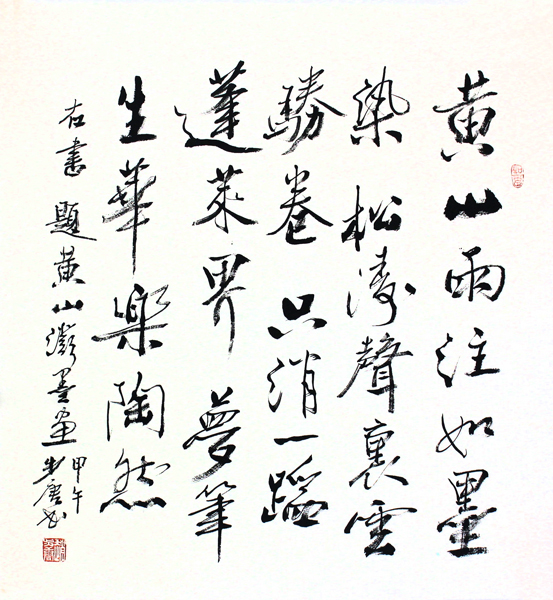 黄山雨注如墨
染松濤聲裏雲
騰卷只消一蹈
蓬萊界夢筆
生華樂陶然
右書題黄山潑墨畫
甲午